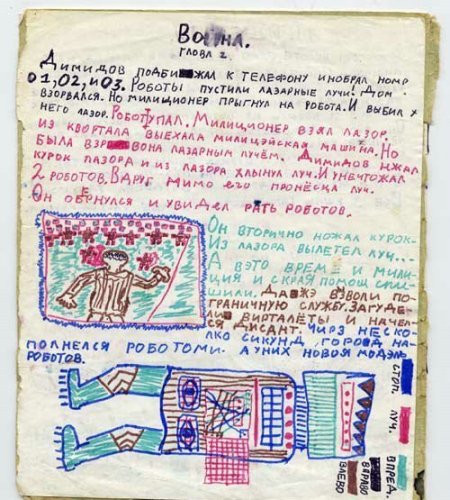 Война.
ГЛОВА 2.
Димидов подбижал к телефону инобрал номр
01,02, и 03. Роботы пустили лазарные лучи. Дом
взорвался. Но милиционер прыгнул на робота. И выбил х
него лазор. Робот упал. Милиционер взял лазор.
из квортала выехала милицэйская машина. Но
была взр вона лазарным лучём. Димидов нжал
курок лазора и из лазора хлынул луч. И унечтожал
2 роботов. Вдруг мимо его пронёсца луч.
Он обернулся и увидел рять роботов.
Он вторично ножал курок-
Из лазора вылетел луч...-
А вэто время и мили-
ция и скрая помощ спи-
шили. Давжэ взвали по-
граничную службу. Загуде-
ли вирталёты и начел-
ся дисант. Чирз неско-
лко сикунд, город на-
полнелся роботоми. А уних новоя модэль
роботов.
СТОП. ЛУЧ.
ВПРЕД.
ВПРАВО
ВЛЕВО